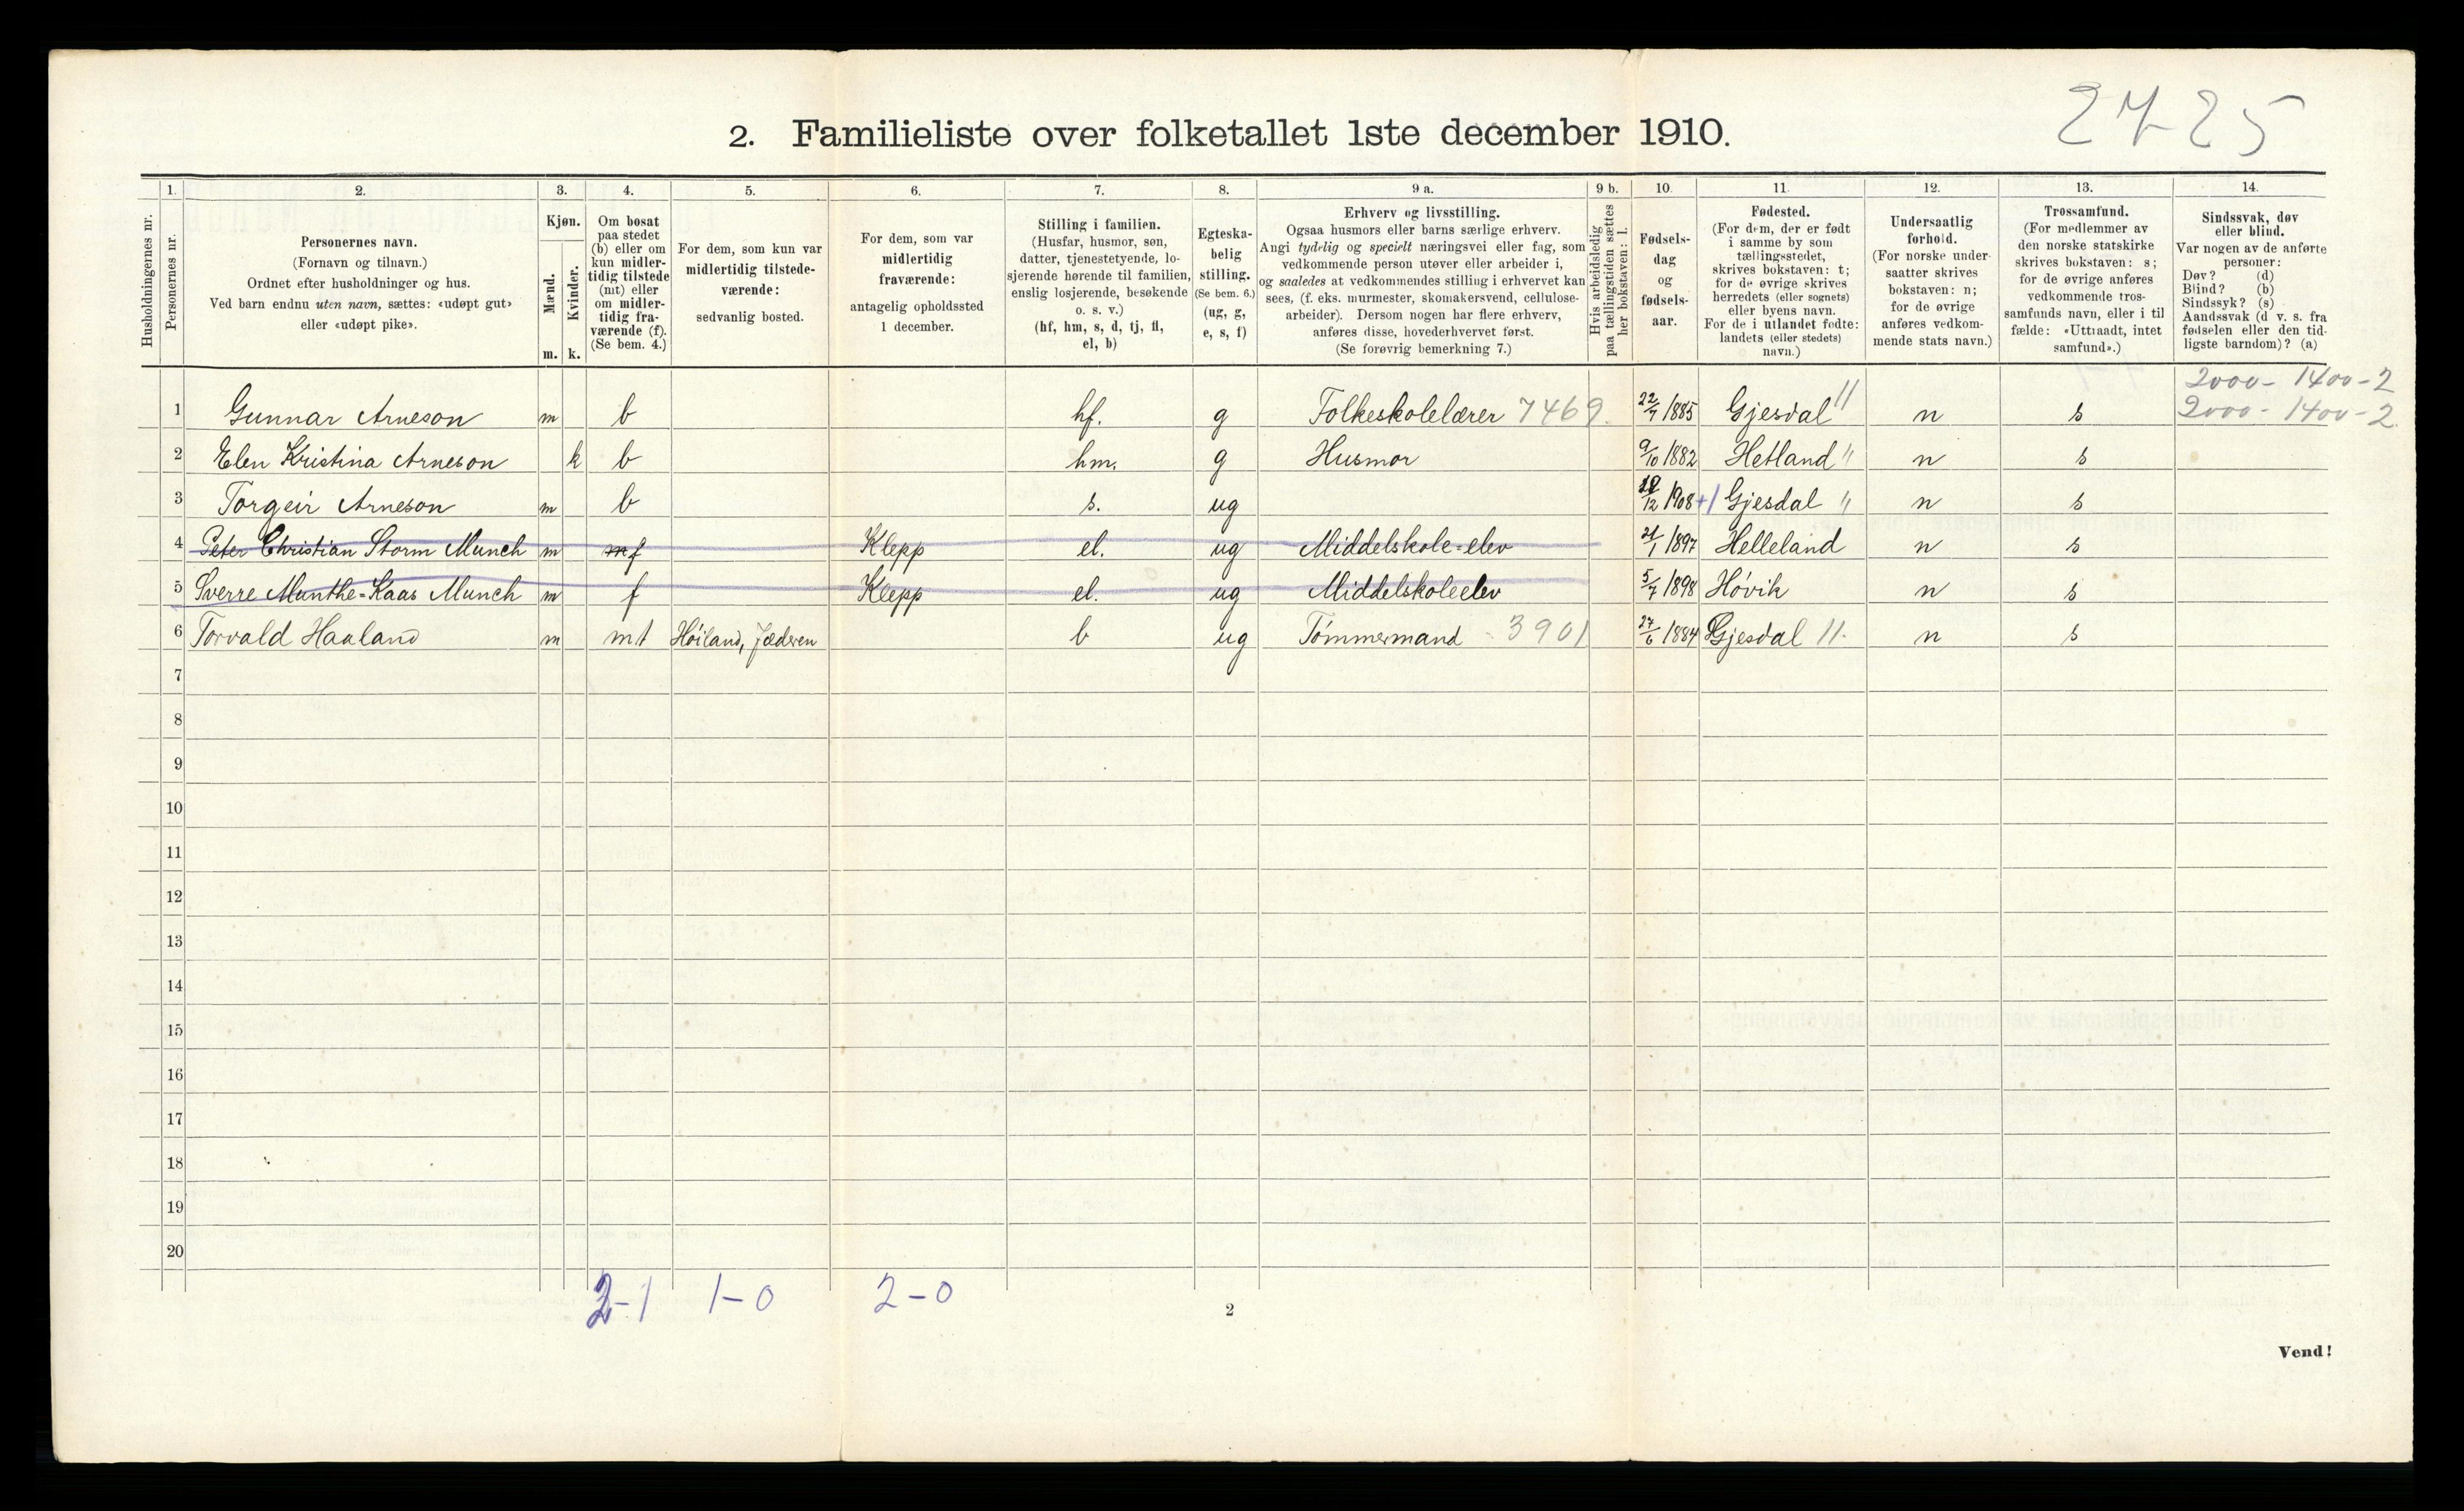 2725
2. Familieliste over folketallet 1ste december 1910.
Husholdningernes nr.
1.
Personernes nr.
2.
Personernes navn.
(Fornavn og tilnavn.)
Ordnet efter husholdninger og hus.
Ved barn endnu uten navn, sættes: «udøpt gut»
eller «udøpt pike».
3.
Kjøn.
Mænd.
Kvinder.
m. k.
4.
Om bosat
paa stedet
(b) eller om
kun midler-
tidig tilstede
(mt) eller
om midler-
tidig fra-
værende (f).
(Se bem. 4.)
5.
For dem, som kun var
midlertidig tilstede-
værende:
sedvanlig bosted.
6.
For dem, som var
midlertidig
fraværende:
antagelig opholdssted
1 december.
7.
Stilling i familien.
(Husfar, husmor, søn,
datter, tjenestetyende, lo-
sjerende hørende til familien,
enslig losjerende, besøkende
o. s. v.)
(hf, hm, s, d, tj, fl,
el, b)
8.
Egteska-
belig
stilling.
(Se bem. 6.)
(ug, g,
e, s, f)
9 a.
Erhverv og livsstilling.
Ogsaa husmors eller barns særlige erhverv.
Angi tydelig og specielt næringsvei eller fag, som
vedkommende person utøver eller arbeider i,
og saaledes at vedkommendes stilling i erhvervet kan
sees, (f. eks. murmester, skomakersvend, cellulose-
arbeider). Dersom nogen har flere erhverv,
anføres disse, hovederhvervet først.
(Se forøvrig bemerkning 7.)
9 b.
Hvis arbeidsledig
paa tællingstiden sættes
her bokstaven: l.
10.
Fødsels-
dag
og
fødsels-
aar.
11.
Fødested.
(For dem, der er født
i samme by som
tællingsstedet,
skrives bokstaven: t;
for de øvrige skrives
herredets (eller sognets)
eller byens navn.
For de i utlandet fødte:
landets (eller stedets)
navn.)
12.
Undersaatlig
forhold.
(For norske under-
saatter skrives
bokstaven: n;
for de øvrige
anføres vedkom-
mende stats navn.)
13.
Trossamfund.
(For medlemmer av
den norske statskirke
skrives bokstaven: s;
for de øvrige anføres
vedkommende tros-
samfunds navn, eller i til
fælde: «Uttraadt, intet
samfund».)
14.
Sindssvak, døv
eller blind.
Var nogen av de anførte
personer:
Døv? (d)
Blind? (b)
Sindssyk? (s)
Aandssvak (d v. s. fra
fødselen eller den tid-
ligste barndom)? (a)
2000 - 1400 - 2
1 Gunnar Arneson m b hf. g Folkeskolelærer 7469. 22/7 1885 Gjesdal " n s 2000 - 1400 - 2.
2 Elen Kristina Arneson k b hm. g Husmor 9/10 1882 Hetland " n s
3 Torgeir Arneson m b s. ug /12 1908 +1 Gjesdal " n s
4 Peter Christian Storm Munch m f Klepp el. ug Middelskole-elev 21/1 1897 Helleland n s
5 Sverre Munthe-Kaas Munch m f Klepp el. ug Middelskoleelev 5/7 1898 Høvik n s
6 Torvald Haaland m mt Høiland, Jæderen b ug Tømmermand - 3901 27/6 1884 Gjesdal 11. n s
7
8
9
10
11
12
13
14
15
16
17
18
19
20
2-1 1-0 2-0
2
Vend!